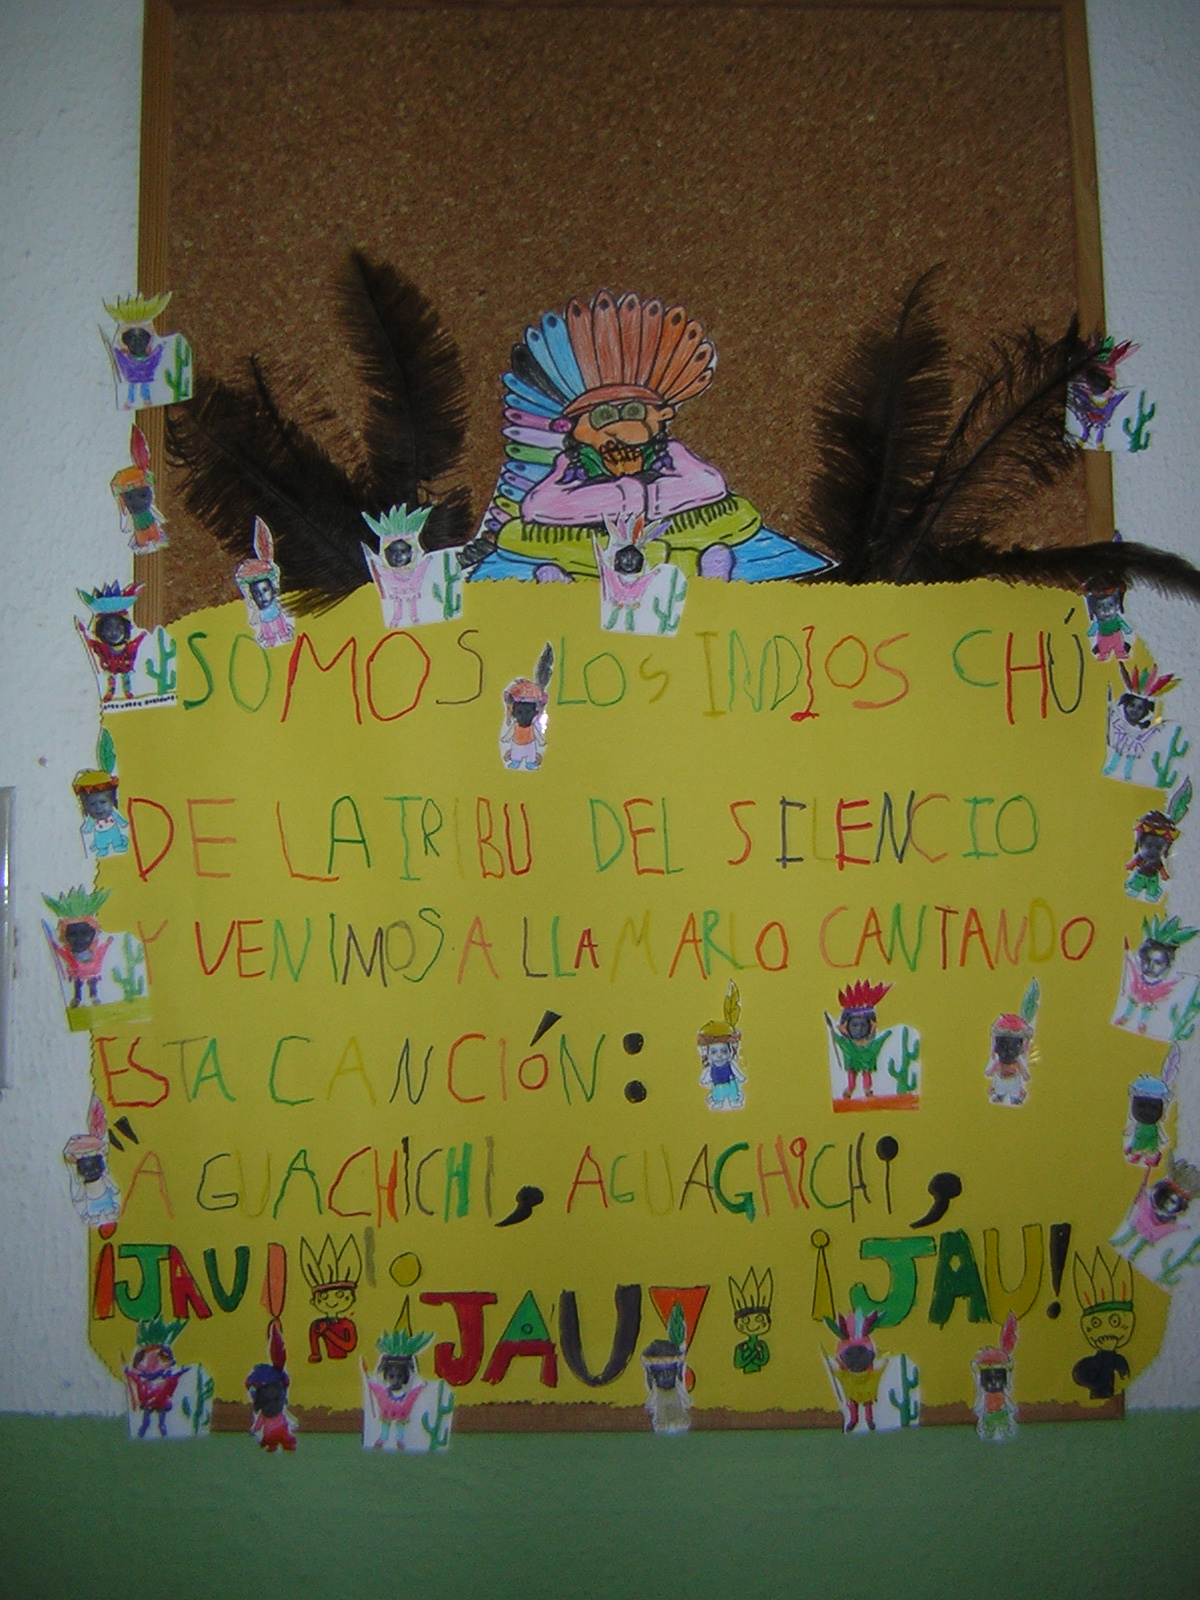 SOMOS LOS INDIOS CHÚ
DE LA TRIBU DEL SILENCIO
Y VENIMOS A LLAMARLO CANTANDO
ESTA CANCIÓN:
"AGUACHICHI, AGUAGHICHI,
¡JAU! ¡JAU! ¡JAU!